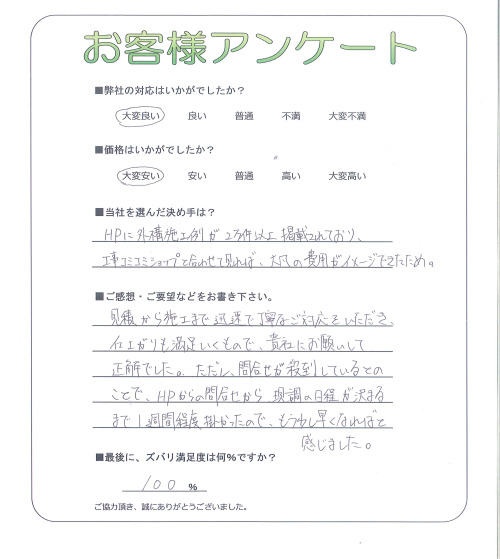 お客様アンケート
■弊社の対応はいかがでしたか？
大変良い 良い 普通 不満 大変不満
■価格はいかがでしたか？
大変安い 安い 普通 高い 大変高い
■当社を選んだ決め手は？
HPに外構施工例が2万件以上掲載されており、
工事コミコミショップと合わせて見れば、大凡の費用がイメージできたため。
■ご感想・ご要望などをお書き下さい。
見積から施工まで迅速で丁寧なご対応をいただき、
仕上がりも満足いくもので、貴社にお願いして
正解でした。ただし、問合せが殺到しているとの
ことで、HPからの問合せから現調の日程が決まる
まで1週間程度掛かったので、もう少し早くなればと
感じました。
■最後に、ズバリ満足度は何%ですか？
100 %
ご協力頂き、誠にありがとうございました。